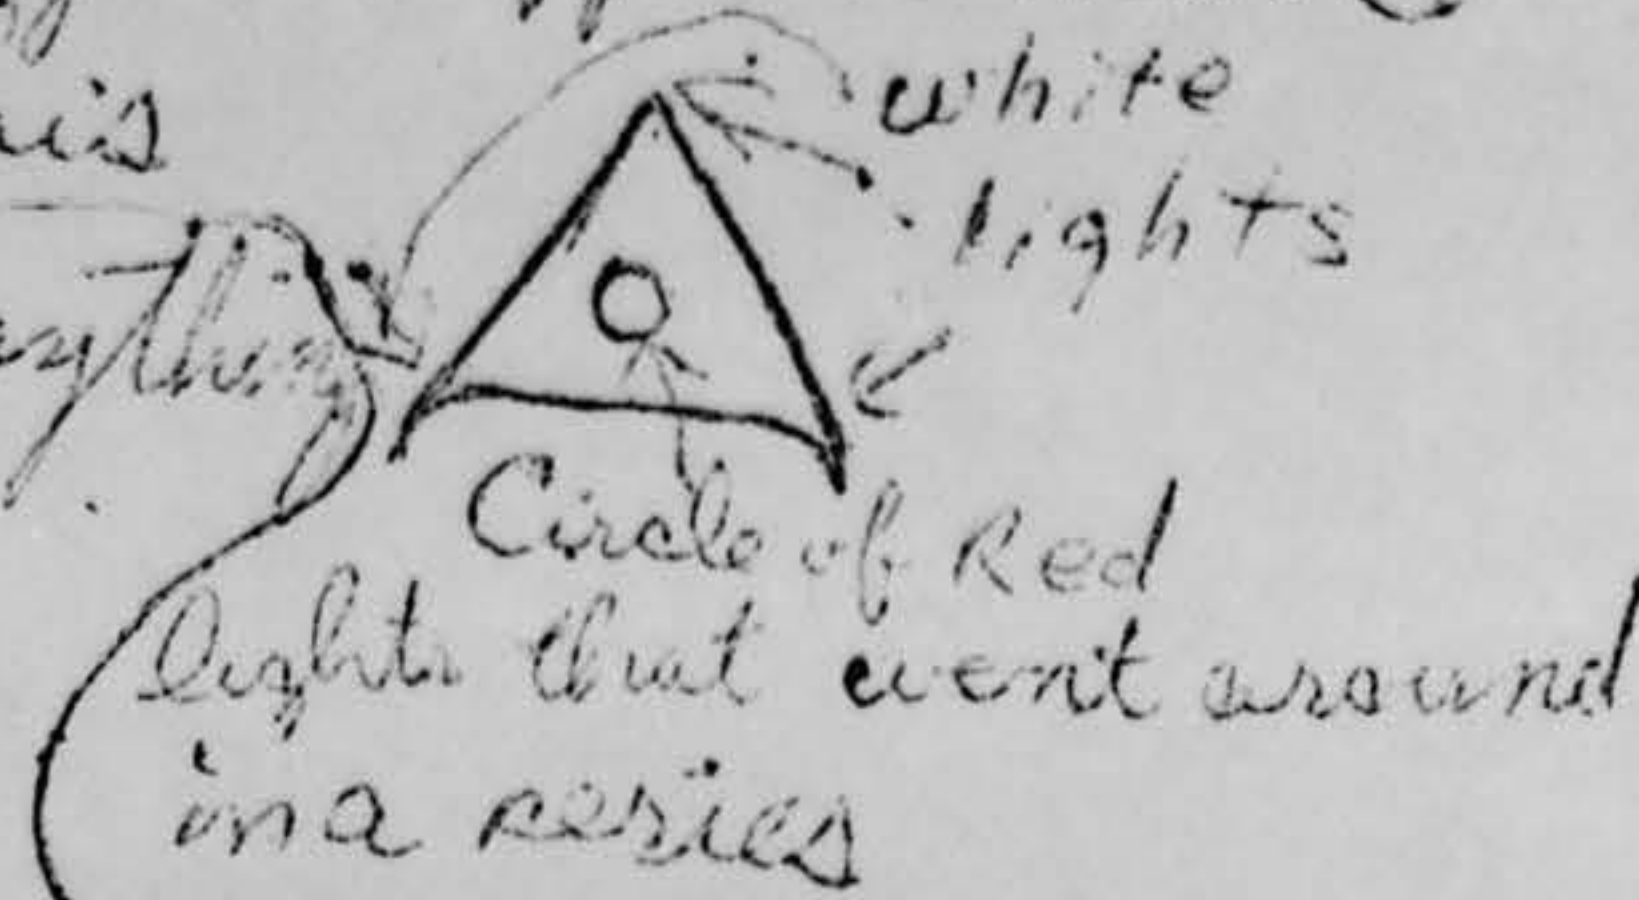 white
lights
Circle of Red
lights that went around
in a series